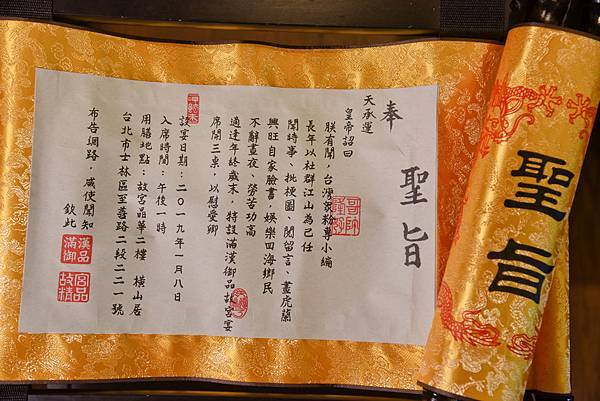 聖旨
奉
天承運
皇帝詔曰
朕有聞，台灣眾粉專小編
長年以社群江山為己任
聞時事、批梗圖、閱留言、畫虎蘭
興旺自家臉書，娛樂四海鄉民
不辭晝夜、勞苦功高
適逢年終歲末，特設滿漢御品故宮宴
席開三桌，以慰愛卿
設宴日期：二〇一九年一月八日
入席時間：午後一時
用膳地點：故宮晶華二樓 橫山居
台北市士林區至善路二段二二一號
布告網路 咸使聞知
欽此
漢品
滿御
宮品
故精
聖旨